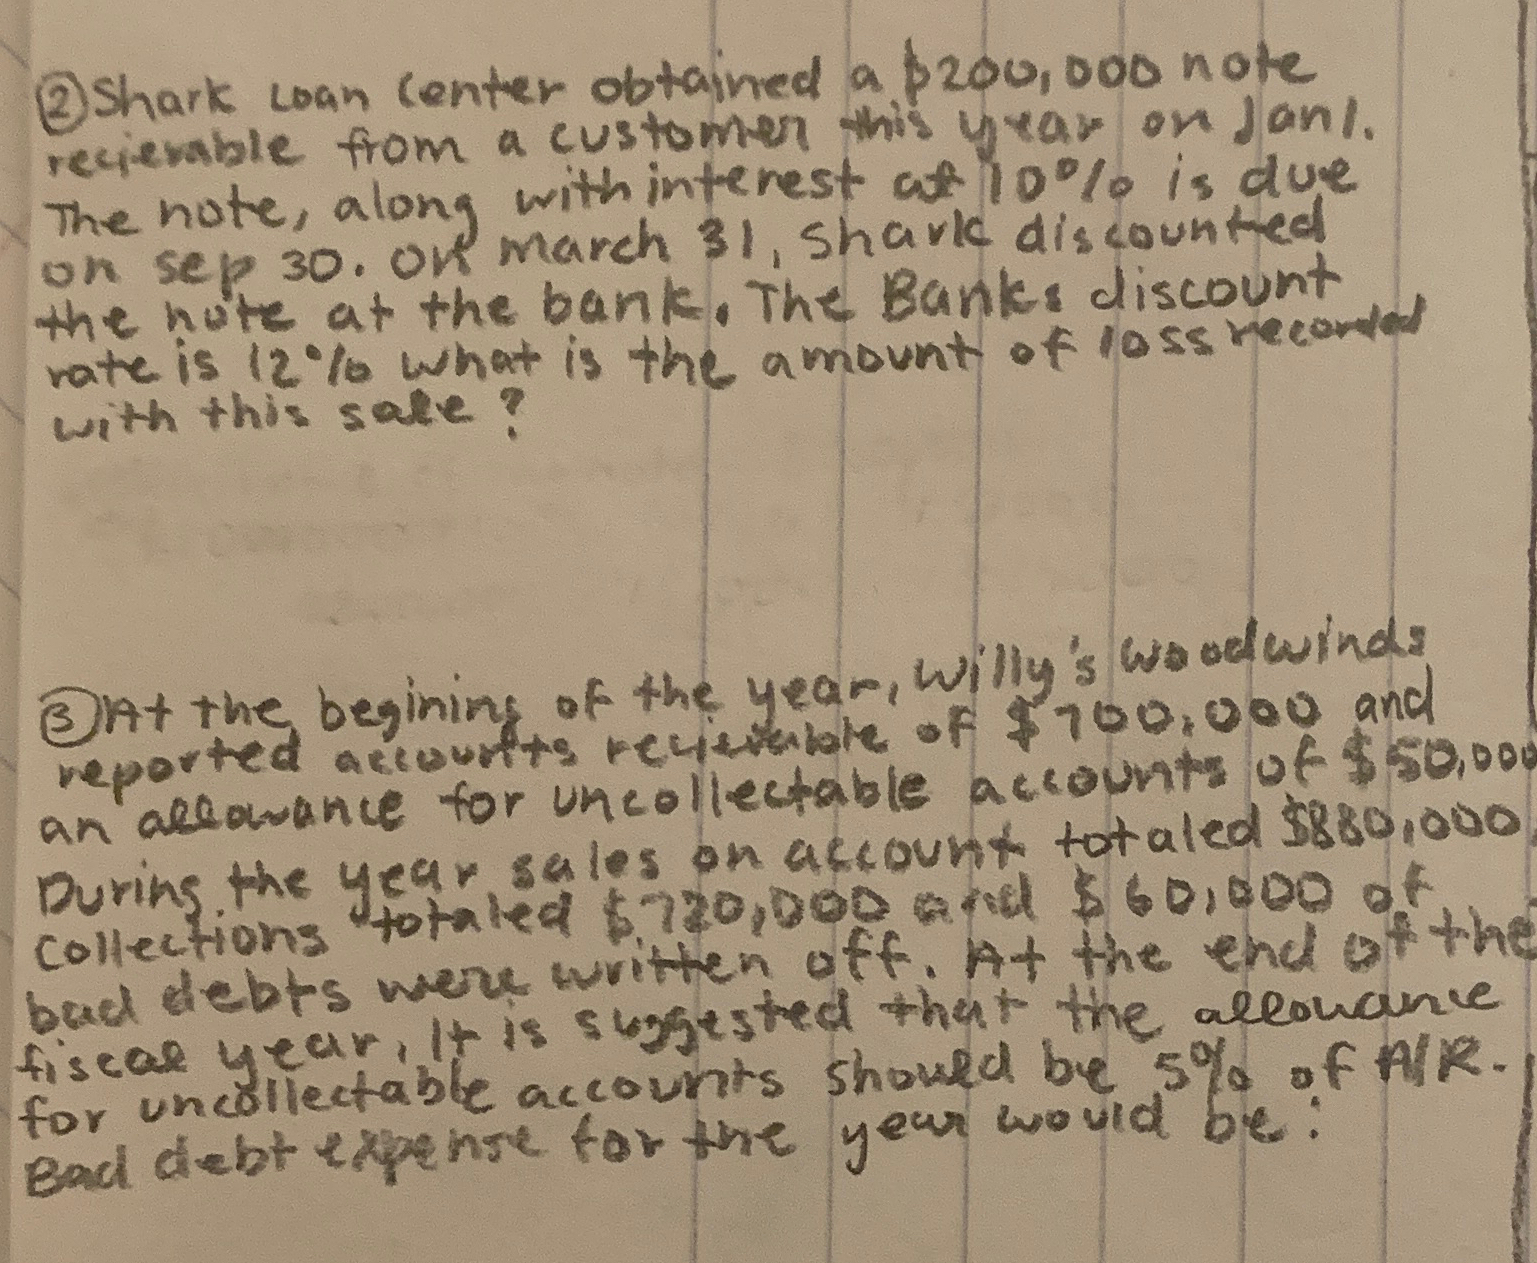 ② Shark Loan Center obtained a $200,000 note
recievable from a customer this year on Jan 1.
The note, along with interest at 10% is due
on sep 30. On March 31, Shark discounted
the note at the bank. The Banks discount
rate is 12% what is the amount of loss recorded
with this sale?
③ At the begining of the year, Willy's Woodwinds
reported accounts recievable of $700,000 and
an allowance for uncollectable accounts of $50,000
During the year sales on account totaled $880,000
Collections totaled $720,000 and $60,000 of
bad debts were written off. At the end of the
fiscal year, It is suggested that the allowance
for uncollectable accounts should be 5% of A/R.
Bad debt expense for the year would be: